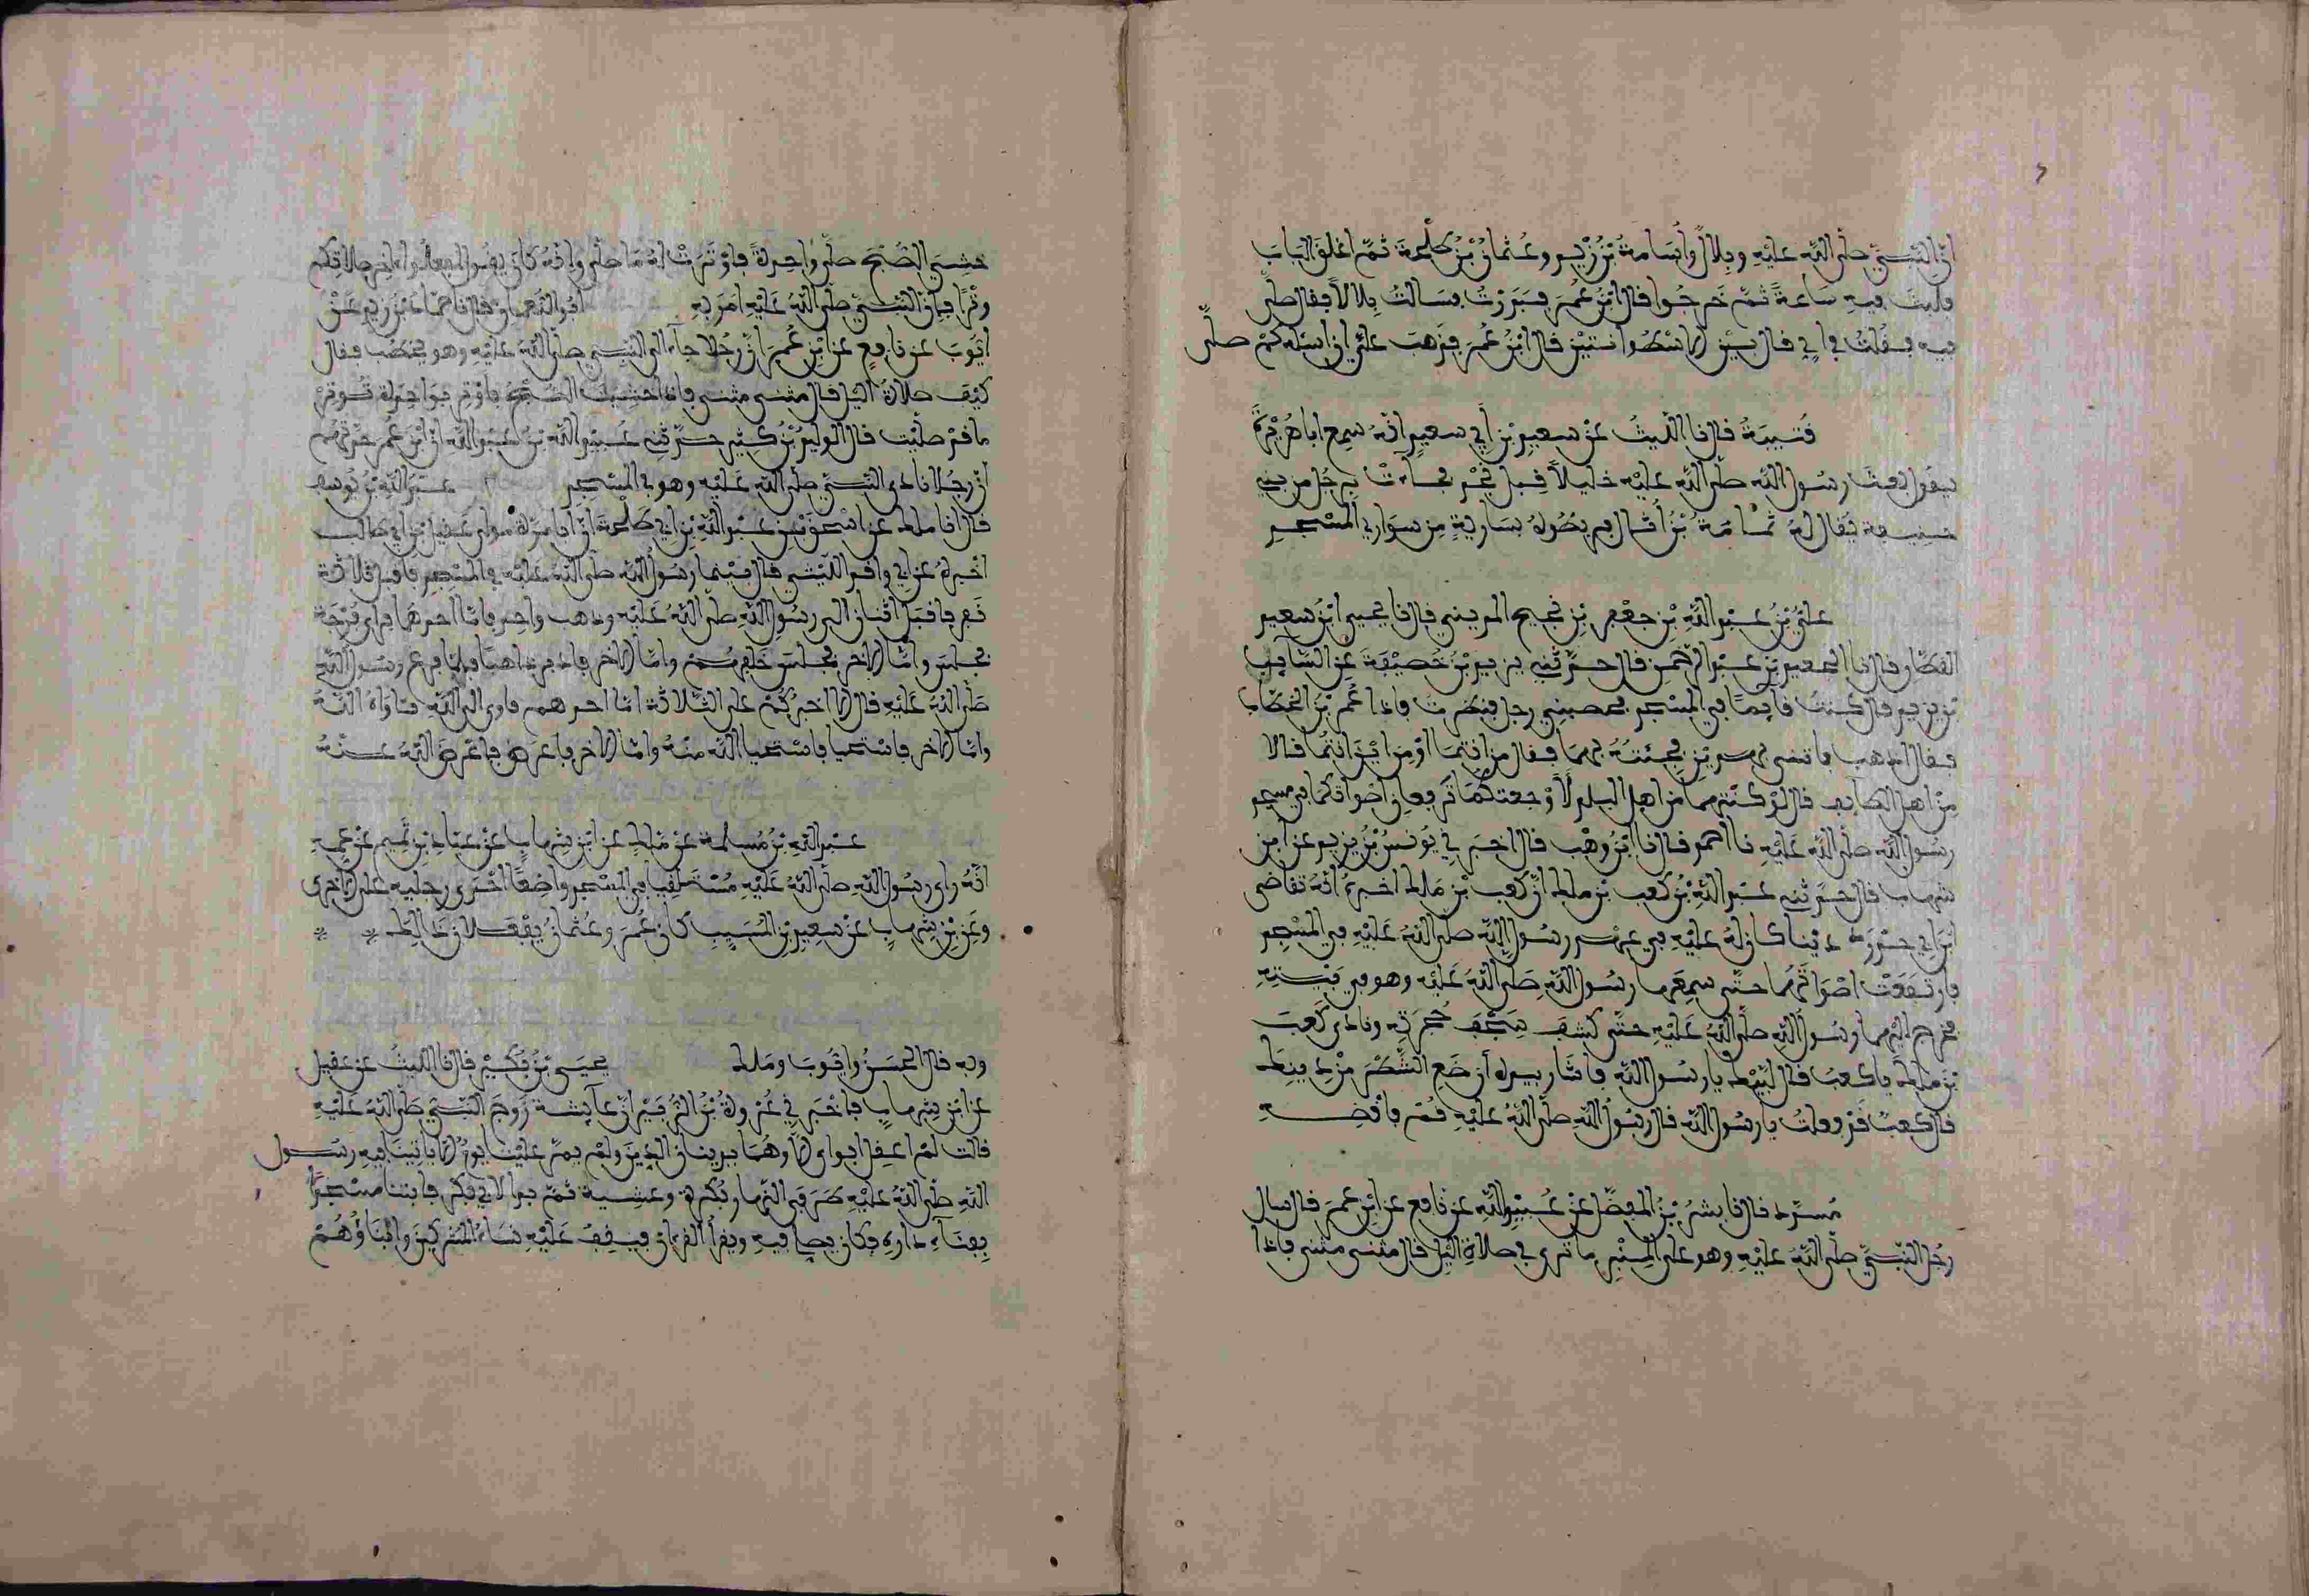 ان النبي صلى الله عليه وبلال واسامة بن زيد وعثمان بن طلحة ثم اغلق الباب
فلبث فيه ساعة ثم خرجوا قال ابن عمر فبدرت فسالت بلالا فقال صلى
فيه فقلت في اي قال بين الاسطوانتين قال ابن عمر فذهب علي ان اسئله كم صلى
قتيبة قال نا الليث عن سعيد بن أبي سعيد انه سمع ابا هريرة
يقول بعث رسول الله صلى الله عليه خيلا قبل نجد فجاءت برجل من بني
حنيفة يقال له ثمامة بن أثال فربطوه بسارية من سواري المسجد
علي بن عبد الله بن جعفر بن نجيح المديني قال نا يحيى ابن سعيد
القطان قال نا الجعيد بن عبد الرحمن قال حدثني يزيد بن خصيفة عن السائب
بن يزيد قال كنت قائما في المسجد فحصبني رجل فنظرت فاذا عمر بن الخطاب
فقال اذهب فاتني بهذين فجئته بهما فقال من انتما او من اين انتما قالا
من اهل الطائف قال لو كنتما من اهل البلد لأوجعتكما ترفعان اصواتكما في مسجد
رسول الله صلى الله عليه نا احمد قال نا ابن وهب قال اخبرني يونس بن يزيد عن ابن
شهاب قال حدثني عبد الله بن كعب بن ملك ان كعب بن مالك اخبره انه تقاضى
ابن ابي حدرد دينا كان له عليه في عهد رسول الله صلى الله عليه في المسجد
فارتفعت اصواتهما حتى سمعها رسول الله صلى الله عليه وهو في بيته
فخرج اليهما رسول الله صلى الله عليه حتى كشف سجف حجرته ونادى كعب
بن ملك يا كعب قال لبيك يا رسول الله فاشار بيده أن ضع الشطر من دينك
قال كعب قد فعلت يا رسول الله قال رسول الله صلى الله عليه قم فاقضه
مسدد قال نا بشر بن المفضل عن عبيد الله عن نافع عن ابن عمر قال سال
رجل النبي صلى الله عليه وهو على المنبر ما ترى في صلاة الليل قال مثنى مثنى فاذا
خشي الصبح صلى واحدة فاوترت له ما صلى وانه كان يقول اجعلوا اخر صلاتكم
وترا فان النبي صلى الله عليه امر به ابو النعمان قال نا حماد بن زيد عن
ايوب عن نافع عن ابن عمر ان رجلا جاء الى النبي صلى الله عليه وهو يخطب فقال
كيف صلاة الليل قال مثنى مثنى فاذا خشيت الصبح فاوتر بواحدة توتر
ما قد صليت قال الوليد بن كثير حدثني عبيد الله بن عبد الله ان ابن عمر حدثهم
ان رجلا نادى النبي صلى الله عليه وهو في المسجد عبد الله بن يوسف
قال نا ملك عن اسحق بن عبد الله بن ابي طلحة ان أبا مرة مولى عقيل بن ابي طالب
اخبره عن ابي واقد الليثي قال بينما رسول الله صلى الله عليه في المسجد فاقبل ثلاثة
نفر فاقبل اثنان الى رسول الله صلى الله عليه وذهب واحد فاما احدهما فراى فرجة
فجلس واما الاخر فجلس خلفهم واما الاخر فادبر ذاهبا فلما فرغ رسول الله
صلى الله عليه قال الا اخبركم على الثلاثة اما احدهم فاوى الى الله فئاواه الله
واما الاخر فاستحيا فاستحيا الله منه واما الاخر فاعرض فاعرض الله عنه
عبد الله بن مسلمة عن ملك عن ابن شهاب عن عباد بن تميم عن عمه
انه راى رسول الله صلى الله عليه مستلقيا في المسجد واضعا احدى رجليه على الاخرى
وعن بن شهاب عن سعيد بن المسيب كان عمر وعثمان يفعلان ذالك
وبه قال الحسن وايوب وملك يحيى بن بكير قال نا الليث عن عقيل
عن ابن شهاب فاخبرني عروة بن الزبير ان عائشة زوج النبي صلى الله عليه
قالت لم اعقل ابواي الا وهما يدينان الدين ولم يمر علينا يوم الا ياتينا فيه رسول
الله صلى الله عليه طرفي النهار بكرة وعشية ثم بدا لابي بكر فابتنا مسجدا
بفناء داره فكان يصلي فيه ويقرأ القرءان فيقف عليه نساء المشركين وابناؤهم